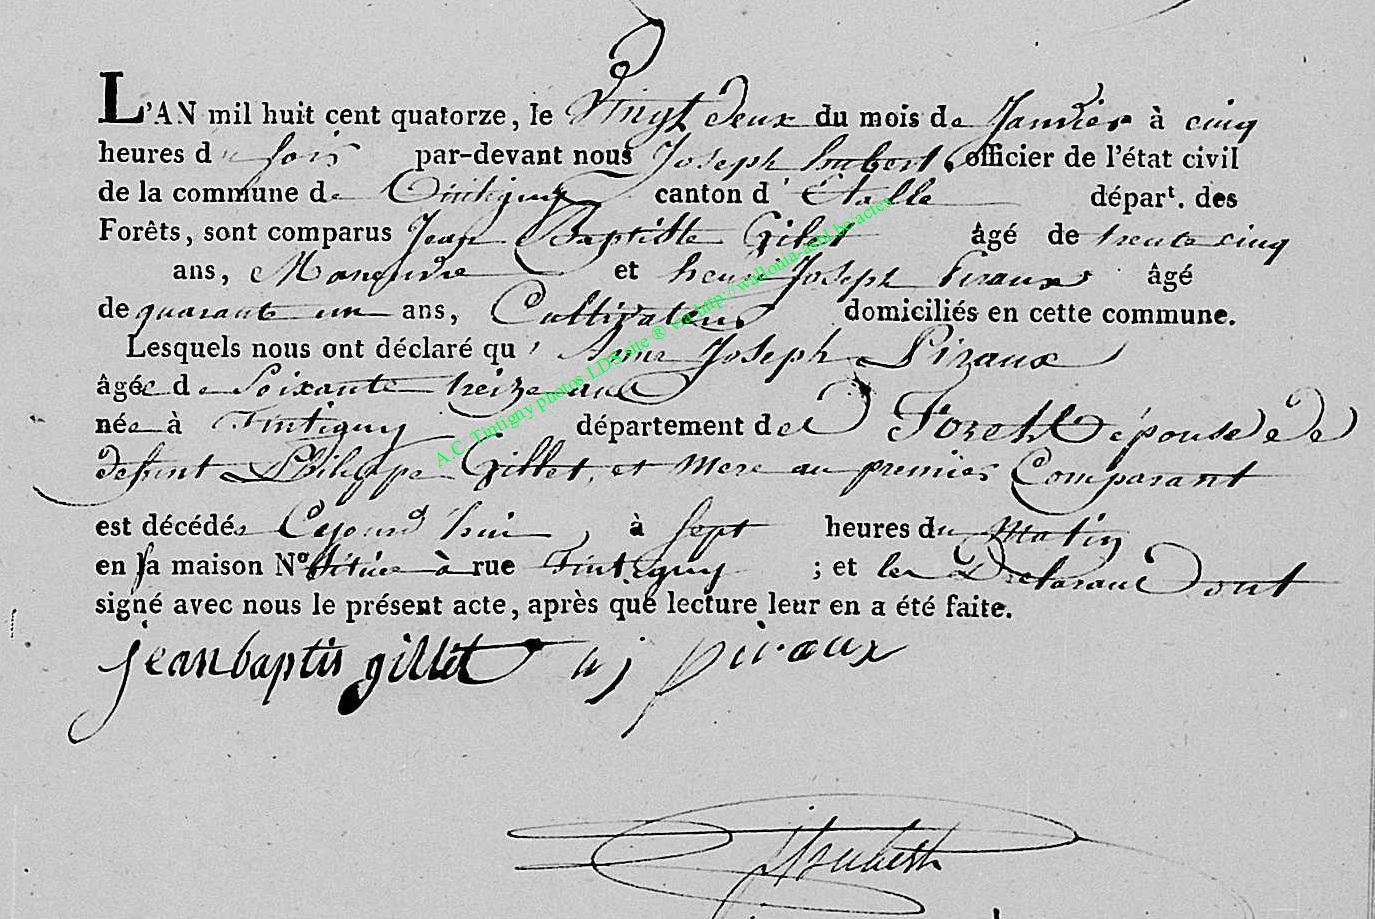 L'AN mil huit cent quatorze, le Vingt deux du mois de Janvier à cinq
heures du soir par-devant nous Joseph Imbert, officier de l'état civil
de la commune de Tintigny canton d'Étalle départ. des
Forêts, sont comparus Jean Baptiste Gilet âgé de trente cinq
ans, Manœuvre et henri Joseph Piraux âgé
de quarante un ans, Cultivateur domiciliés en cette commune.
Lesquels nous ont déclaré qu'Anne Joseph Piraux
âgée de Soixante treize ans
née à Tintigny département des Forets épouse de
defunt Philippe Gillet, et mere au premier Comparant
est décédée Cejourd'hui à sept heures du Matin
en sa maison N° située à rue Tintigny ; et les Déclarans ont
signé avec nous le présent acte, après que lecture leur en a été faite.
jean baptis gillet hj piraux
A.C. Tintigny photos LDS site ® via http://wallonia-asbl.be/actes